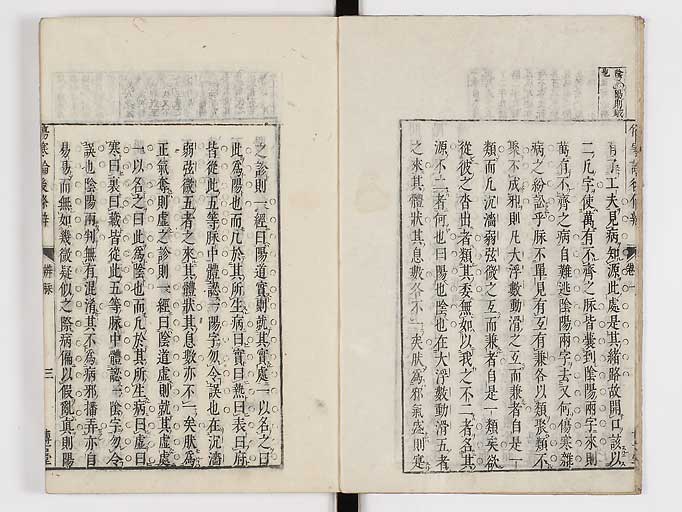 有了工夫見病知源此處是其緒路故開口該以
二凡字使萬有不齊之脉皆囊到陰陽兩字來則
萬有不齊之病自難逃陰陽兩字去又何傷寒雜
病之紛訟乎脉不單見有互有兼各以類聚類不
聚不成邪則凡大浮數動滑之互而兼者自是一
類而凡沉濇弱弦微之互而兼者自是一類矣欲
從彼之沓出者類其委無如以我之不二者各其
源不二者何也曰陽也陰也在大浮數動滑五者
之來其體狀其息數各不一矣狀為邪氣盛則寔
之診則一經曰陽道實則就其實處一以名之曰
此為陽也而凡於其所生病曰實曰熱曰表曰府
皆從此五等脉中體認一陽字勿令誤也在沉濇
弱弦微五者之來其體狀其息數亦不一矣狀為
正氣奪則虛之診則一經曰陰道虛則就其虛處
一以名之曰此為陰也而凡於其所生病曰虛曰
寒曰裏曰臟皆從此五等脉中體認一陰字勿令
誤也陰陽兩判無有混淆其不為病邪播弄亦自
易易而無如幾微疑似之際病偏以假亂真則陽
傷寒論後條辨
辨脉
三